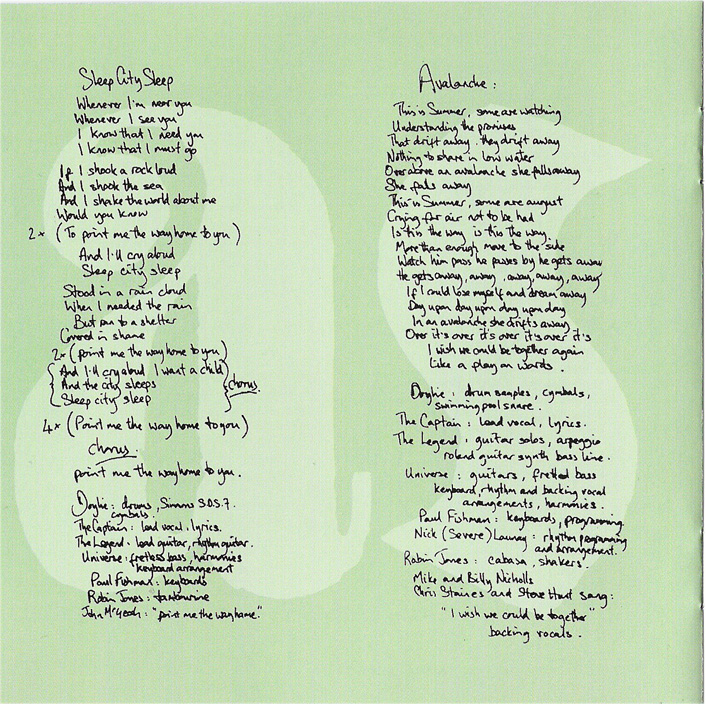 Sleep City Sleep
Whenever I'm near you
Whenever I see you
I know that I need you
I know that I must go
If I shook a rock loud
And I shook the sea
And I shake the world about me
Would you know
2x (To point me the way home to you)
And I'll cry aloud
Sleep city sleep
Stood in a rain cloud
When I needed the rain
But ran to a shelter
Covered in shame
2x (point me the way home to you)
And I'll cry aloud I want a child
And the city sleeps
Sleep city sleep
chorus.
4x (Point me the way home to you)
chorus.
point me the way home to you.
Doyhie: drums, Simmons S.D.S.7.
cymbals.
The Captain: lead vocal. lyrics.
The Legend: lead guitar, rhythm guitar.
Universe: fretless bass, harmonies
keyboard arrangement
Paul Fishman: keyboards
Robin Jones: tambourine
John McGeoch: "point me the way home."
Avalanche:
This is Summer, some are watching
Understanding the promises
That drift away. they drift away
Nothing to share in low water
Over above an avalanche she falls away
She falls away
This is Summer, some are august
Crying for air not to be had
Is this the way is this the way
More than enough move to the side
Watch him pass he passes by he gets away
He gets away, away, away, away, away
If I could lose myself and dream away
Day upon day upon day upon day
In an avalanche she drifts away
Over it's over it's over it's over it's
I wish we could be together again
Like a play on words.
Doyhie: drum samples, cymbals,
swimming pool snare.
The Captain: lead vocal, lyrics.
The Legend: guitar solos, arpeggio
roland guitar synth bass line.
Universe: guitars, fretted bass
keyboard, rhythm and backing vocal
arrangements, harmonies.
Paul Fishman: keyboards, programming.
Nick (Severe) Launay: rhythm programming
and arrangement.
Robin Jones: cabasa, shakers.
Mike and Billy Nicholls
Chris Staines and Steve Hunt sang:
"I wish we could be together"
backing vocals.